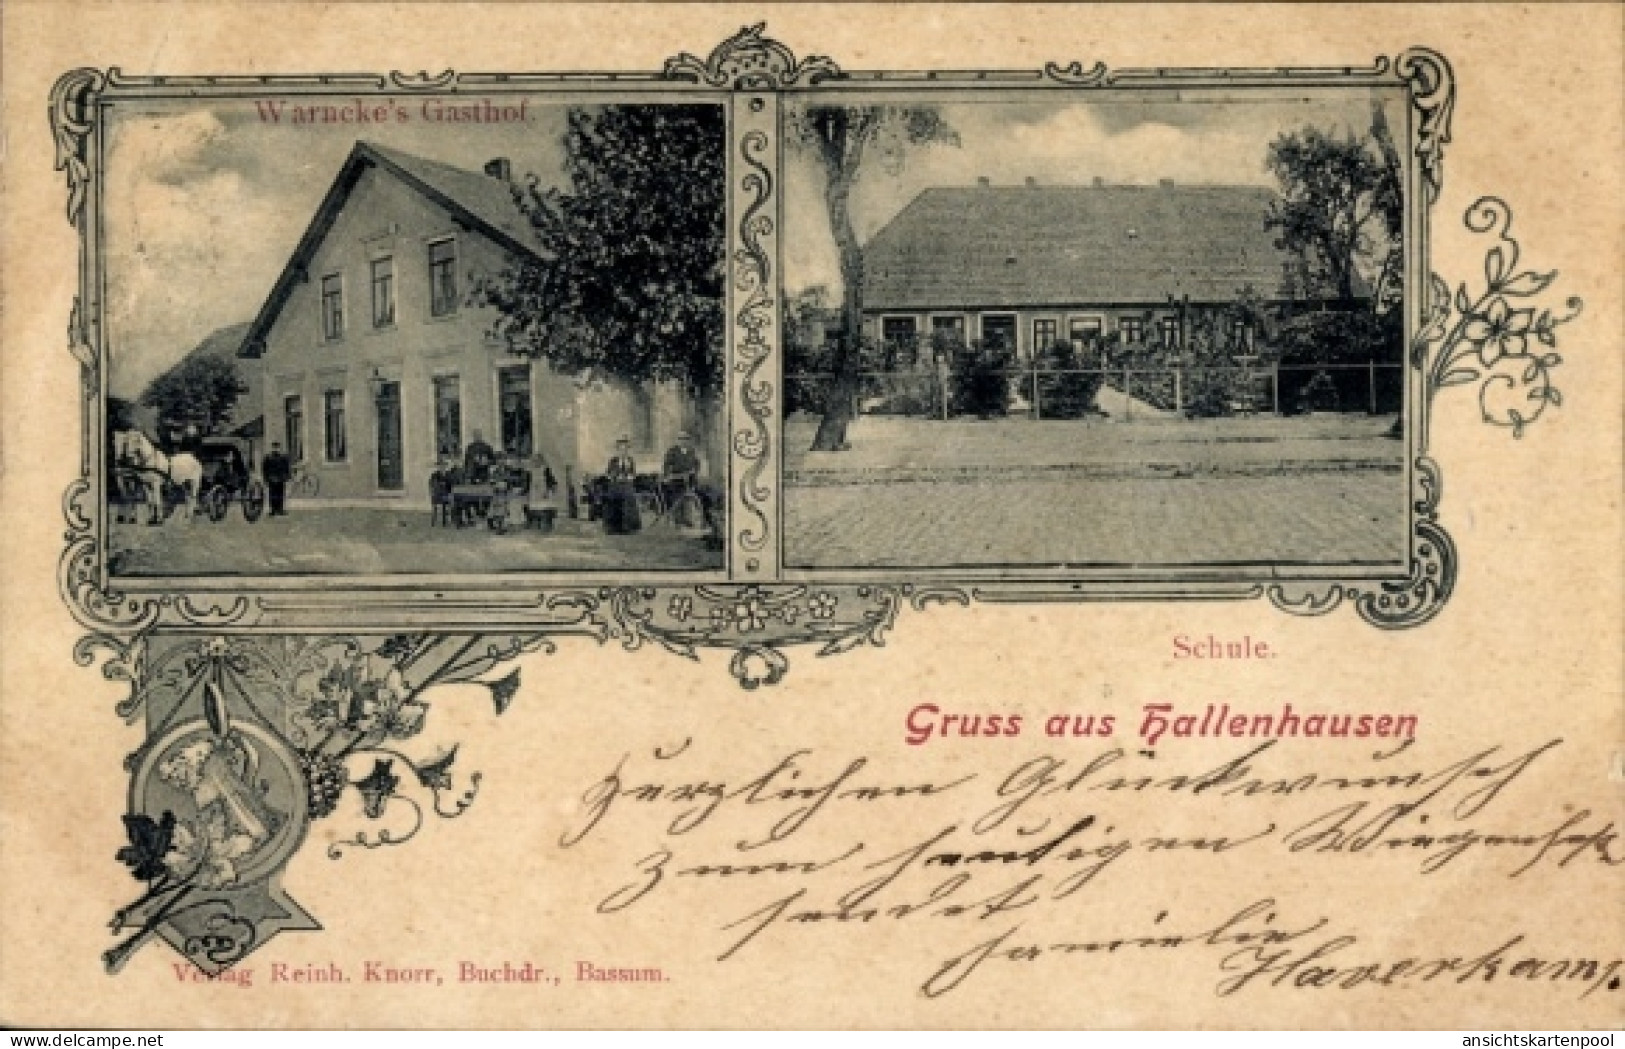 Warncke's Gasthof.
Schule.
Gruss aus Hallenhausen
Herzlichen Glückwunsch
zum heutigen Wiegenfeste
sendet
Familie
Haverkamp.
Verlag Reinh. Knorr, Buchdr., Bassum.
delcampe.net
ansichtskartenpool